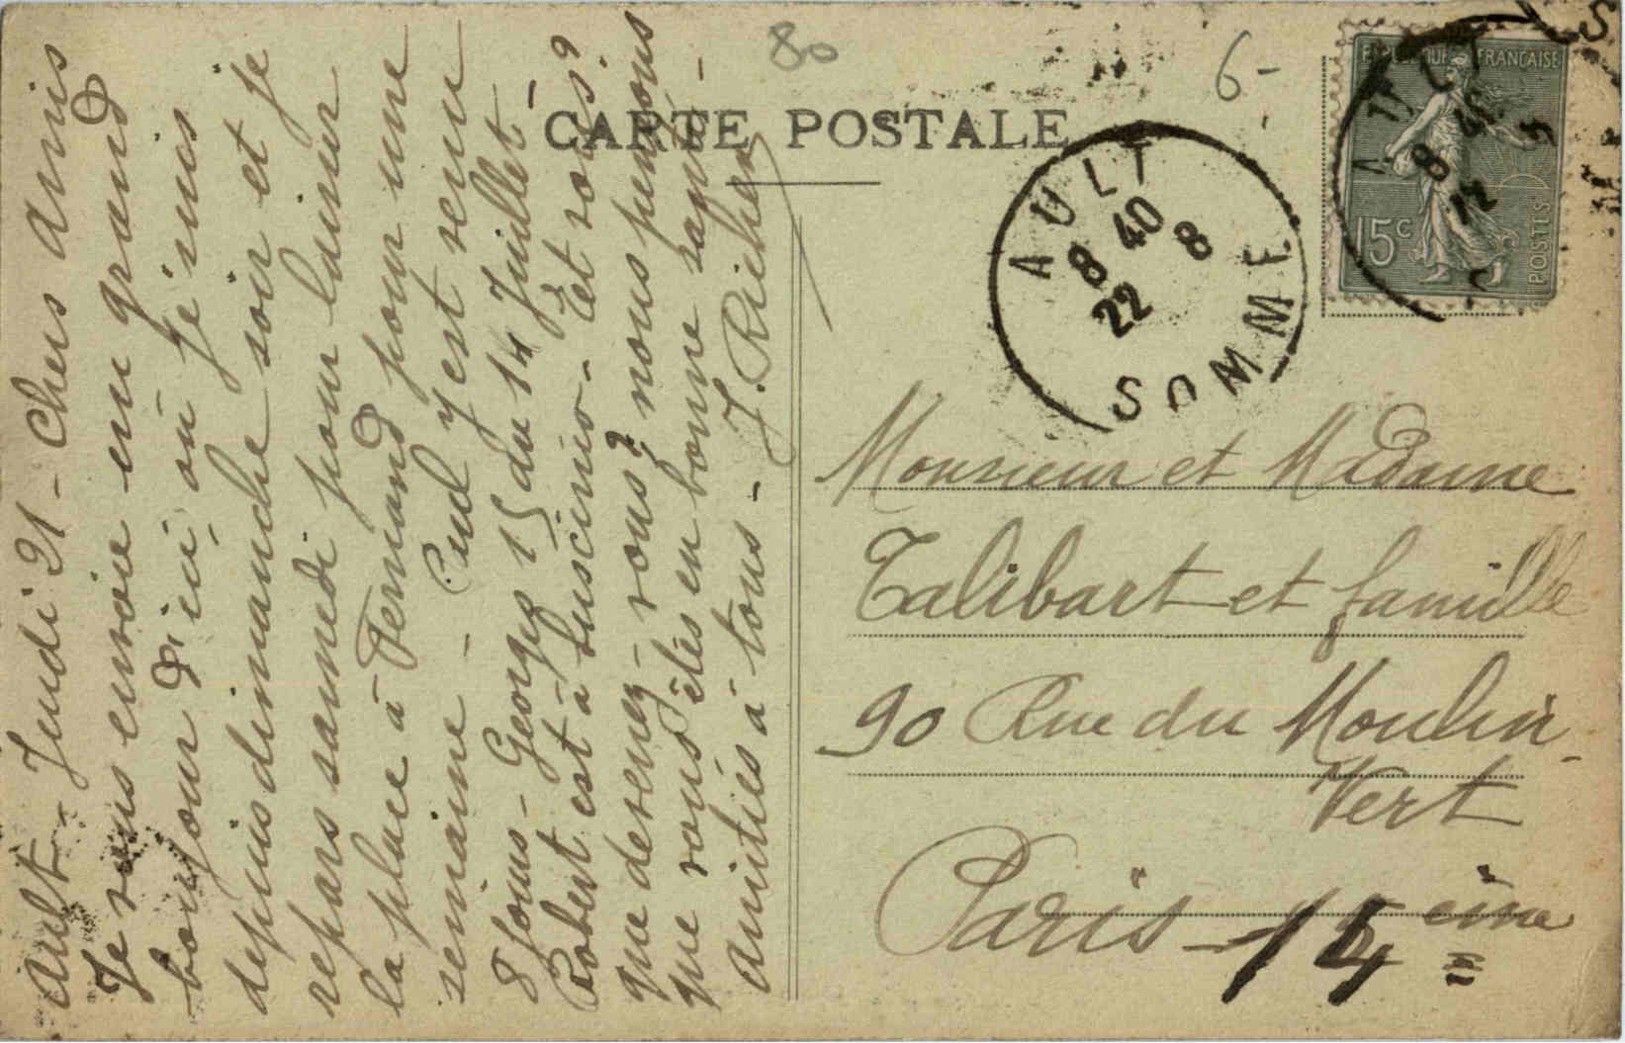 80
6-
CARTE POSTALE
REPUBLIQUE FRANCAISE
15c
POSTES
AULT
8 40
22 8
SOMME
Ault - Jeudi 21 - Chers Amis
Je vous envoie un grand
bonjour d'ici, où je suis
depuis dimanche soir et je
repars samedi pour laisser
la place à Fernand pour une
semaine - Paul y est venu
8 jours - Georges 15 du 14 Juillet -
Robert est à Suscinio - Et vous?
que devenez-vous? nous pensons
que vous êtes en bonne santé -
Amitiés à tous - J. Richer
Monsieur et Madame
Talibart et famille
90 Rue du Moulin-
Vert
Paris - 14 ème